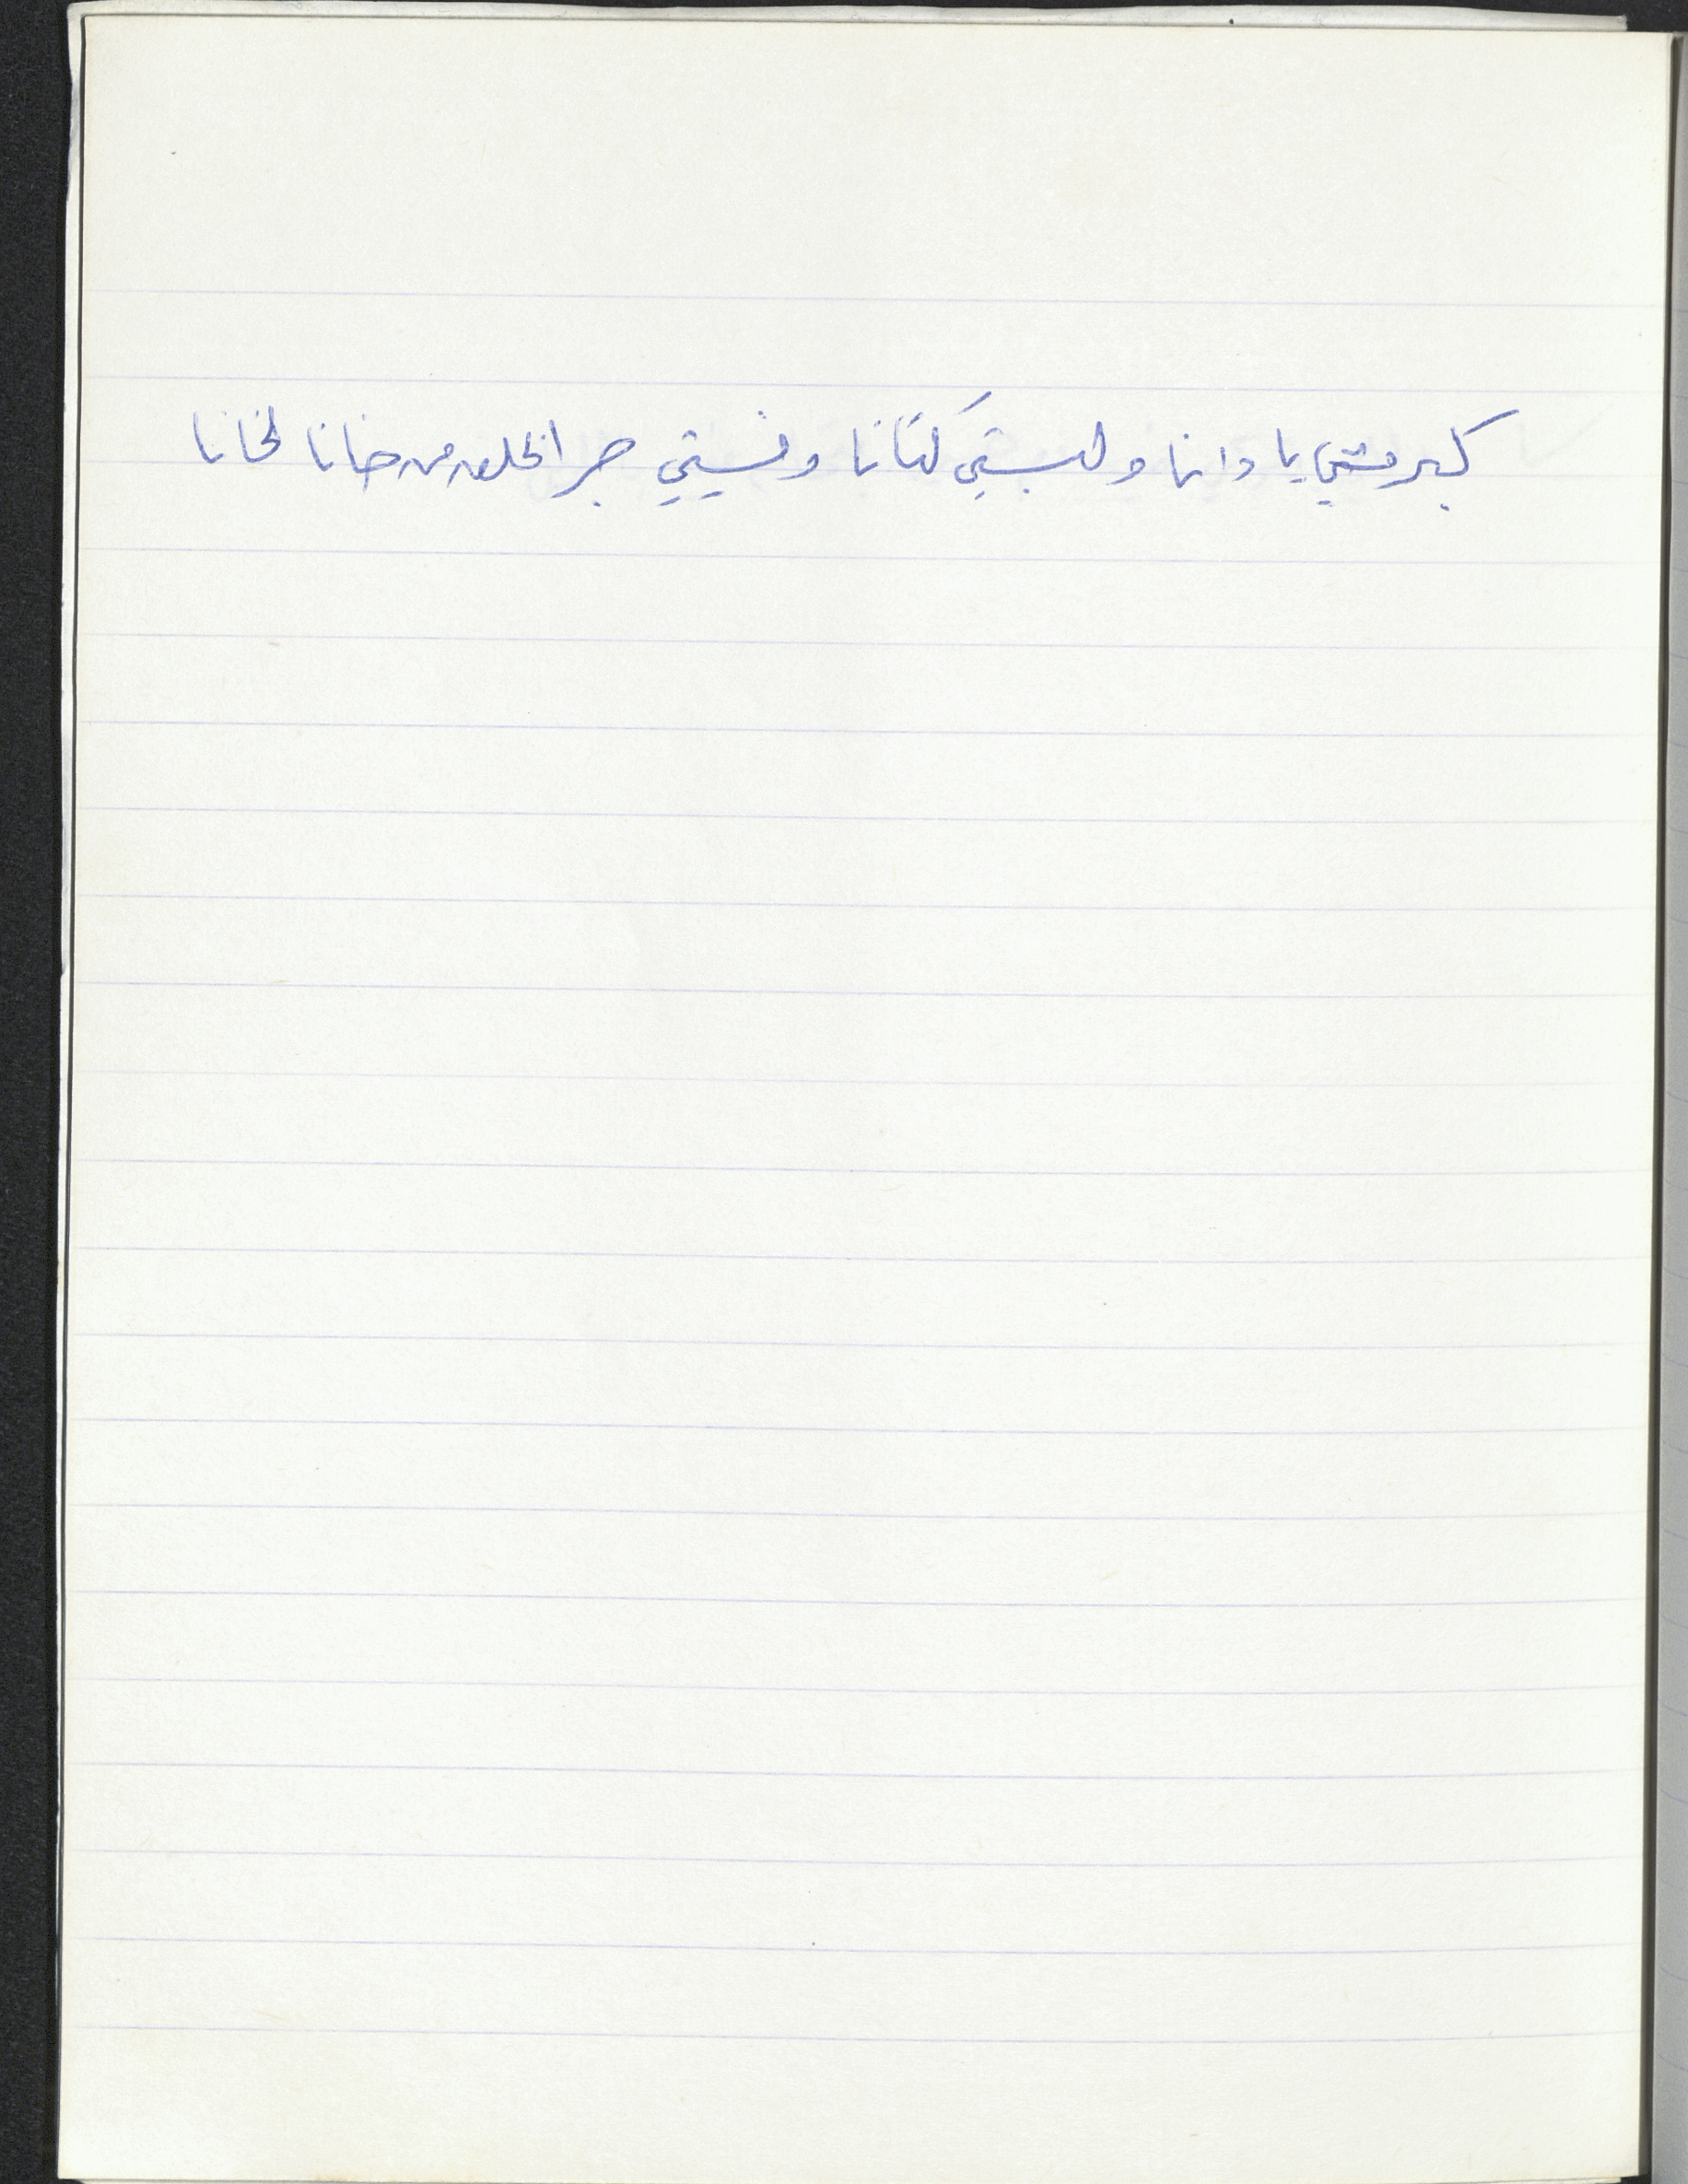 كبرمتي يا دانا ولبستي كتانا ونسيتي جر الخلق من خانا لخانا